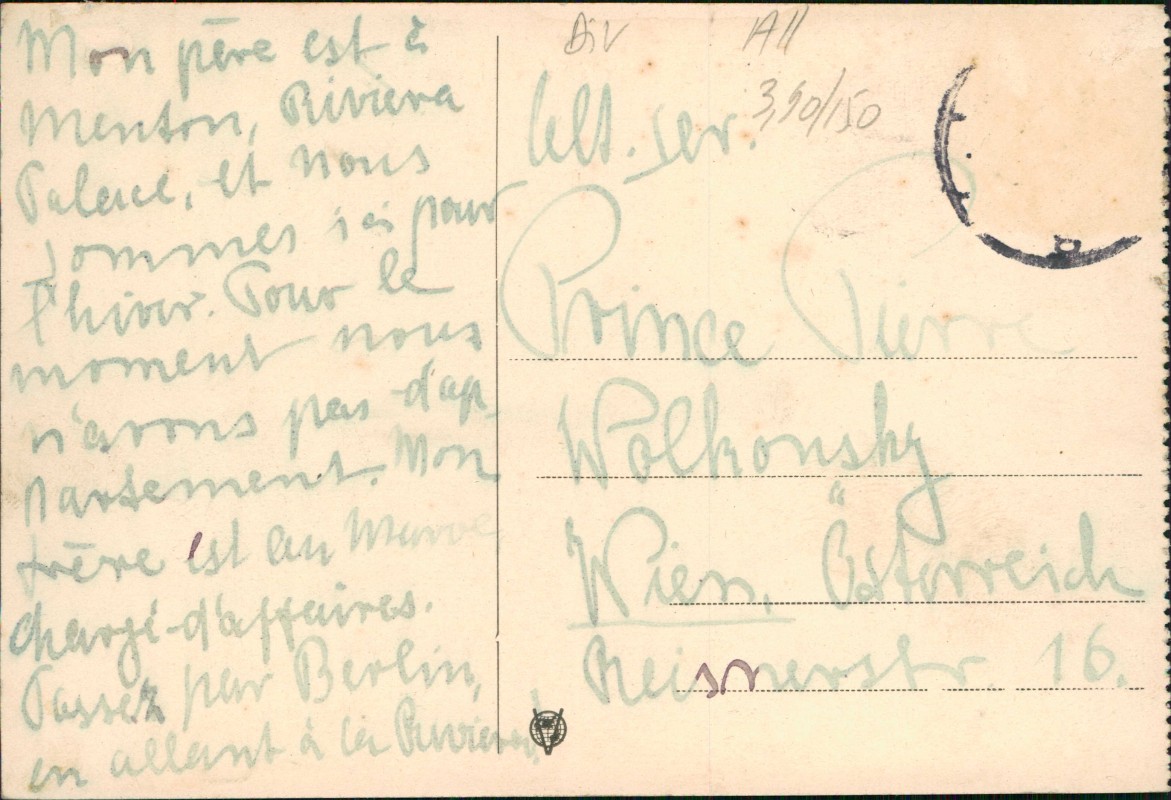 Mon père est à
Menton, Riviera
Palace, et nous
sommes ici pour
l'hiver. Pour le
moment nous
n'avons pas d'ap-
partement. Mon
frère est au Maroc
chargé-d'affaires.
Passez par Berlin,
en allant à la Riviera,
Div
All
3,50/150
Prince Pierre
Wolkonsky
Wien, Österreich
Reisnerstr 16.